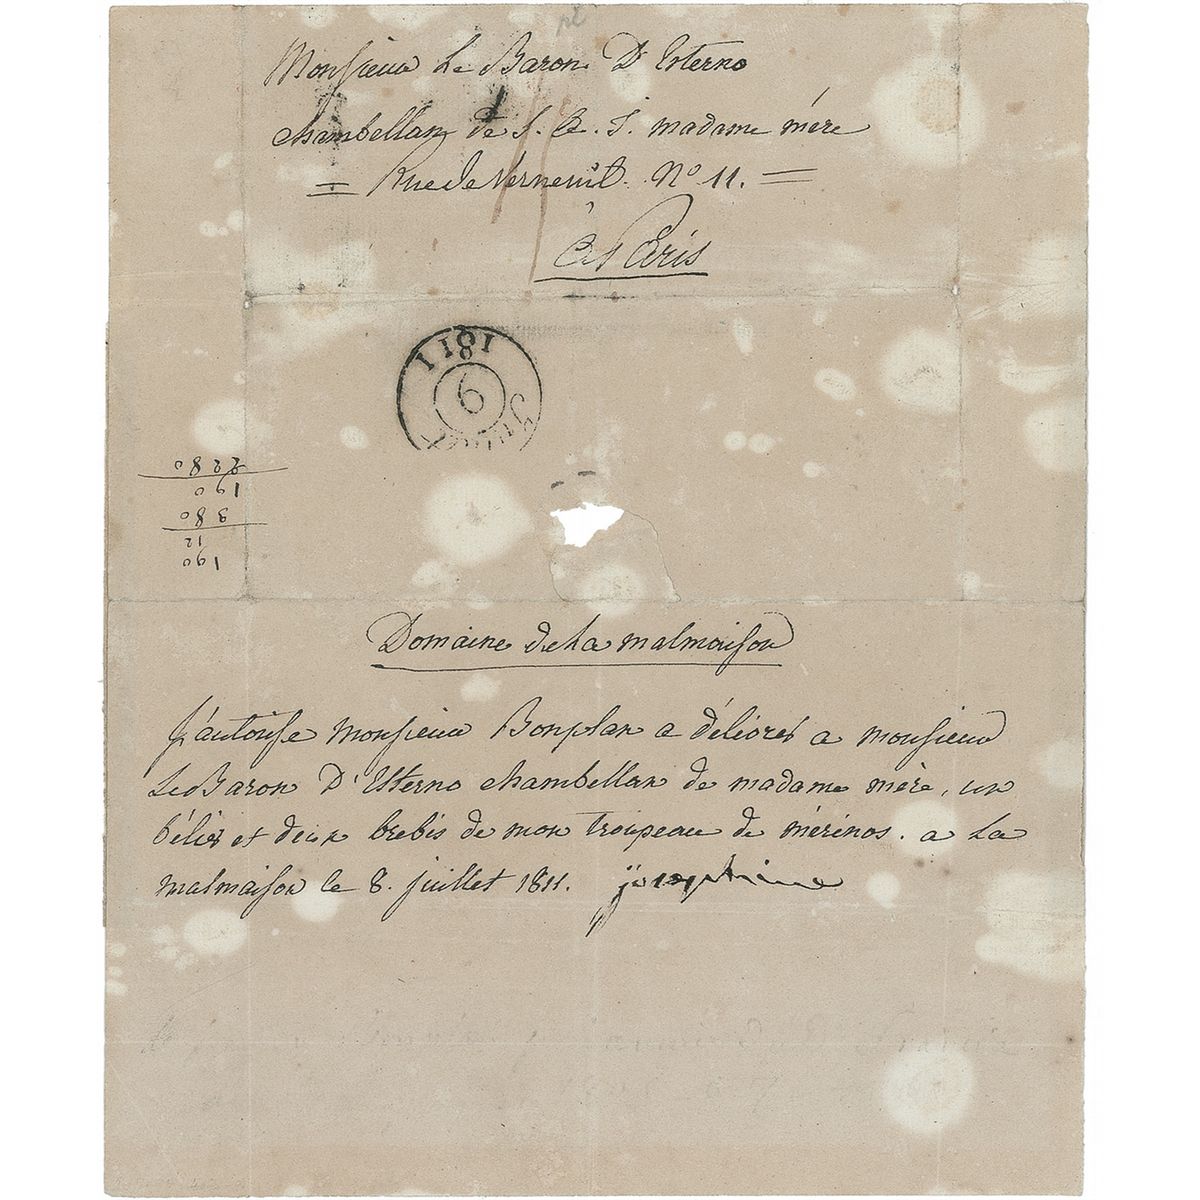 Monsieur Le Baron D'Esterno
chambellan de S. A. I. madame mère
= Rue de Verneuil. No 11. =
à Paris
1811
9
2280
190
380
12
190
Domaine de La malmaison
J'autorise monsieur Bonplan a délivrer a monsieur
Le Baron D'Esterno chambellan de madame mère, un
bélier et deux brebis de mon troupeau de mérinos. a La
malmaison le 8. juillet 1811. josephine